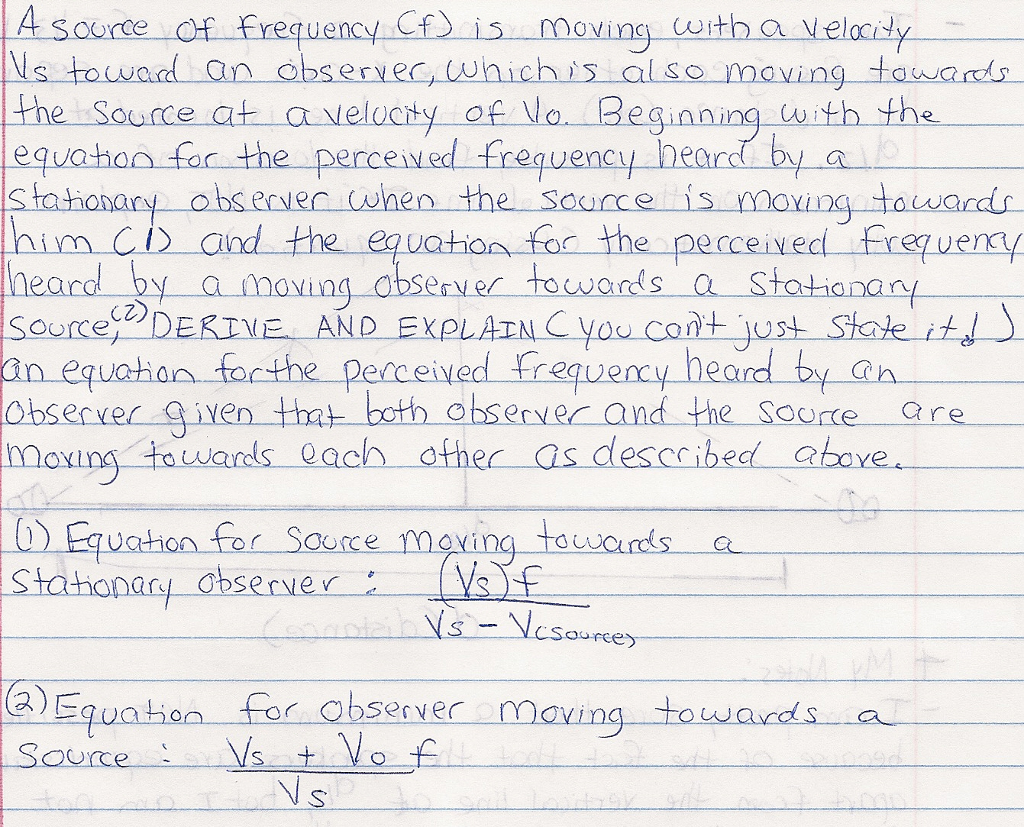 A source of frequency (f) is moving with a velocity
Vs toward an observer, which is also moving towards
the source at a velocity of Vo. Beginning with the
equation for the perceived frequency heard by a
stationary observer when the source is moving towards
him (1) and the equation for the perceived frequency
heard by a moving observer towards a stationary
source,(2) DERIVE AND EXPLAIN (you can't just state it!)
an equation for the perceived frequency heard by an
observer given that both observer and the source are
moving towards each other as described above.
(1) Equation for source moving towards a
stationary observer : (Vs) f
Vs - V(source)
(2) Equation for observer moving towards a
source : Vs + Vo f
Vs